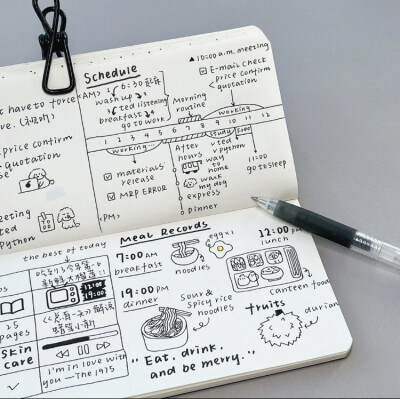 Schedule
▲10:00 a.m. meeting
<AM> 6:30起床
wash up
ted listening
breakfast
go to work
☑ E-mail check
price confirm
quotation
have to force
price confirm
quotation
Morning
routine
working
1 2 3 4 5 6 7 8 9 10 11 12
working...
study
Food
After
hours
ted
python
way
to
home
walk
my dog
express
dinner
11:00
go to sleep
☑ materials'
release
☑ MRP ERROR
<PM>
meeting
ted
Python
Meal Records
the best of today
7:00 AM
breakfast
noodles
eggx1
12:00 PM
lunch
canteen food
19:00 PM
dinner
Sour &
spicy rice
noodles
fruits
durian
12:00
19:00
25
pages
Skin
care
I'm in love with
you — The 1975
"Eat, drink,
and be merry."